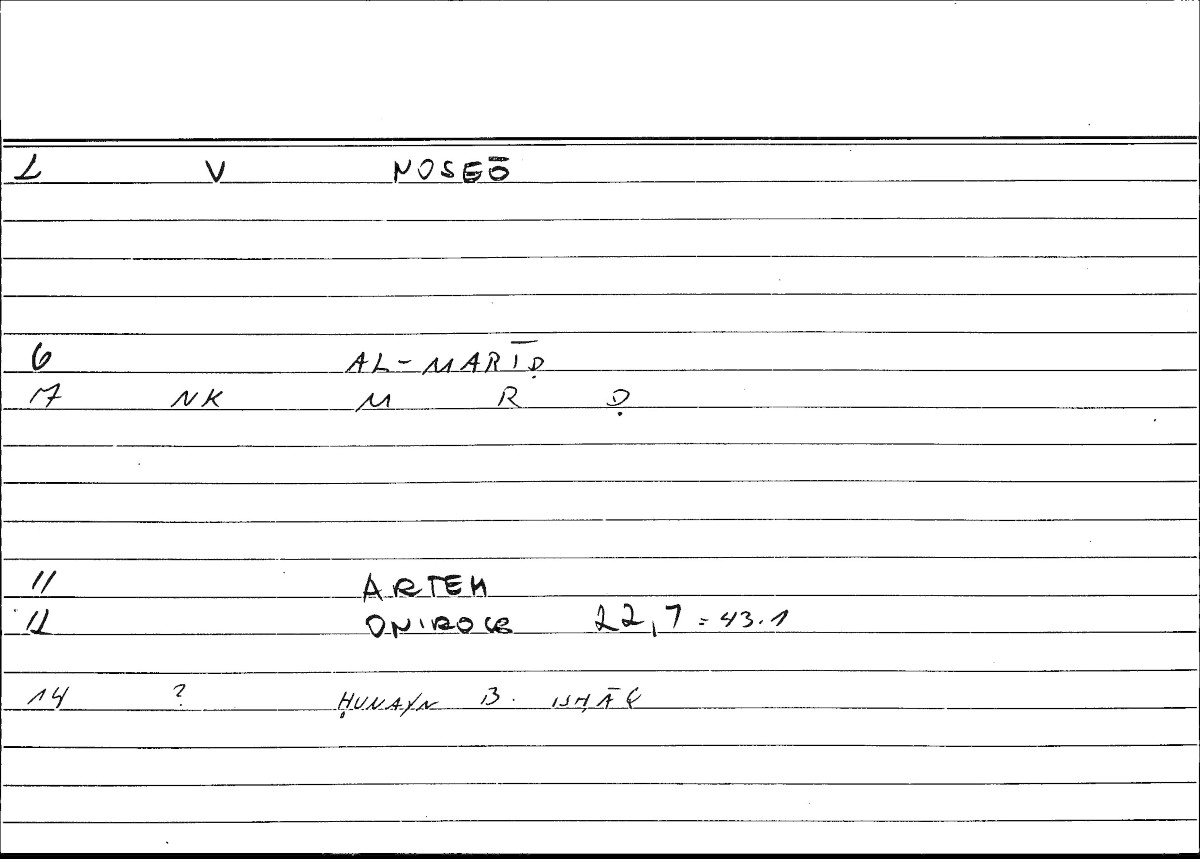 1 V NOSEŌ
6 AL-MARĪḌ
7 NK M R Ḍ
11 ARTEM
12 ONIROCR 22,7 = 43.1
14 ? ḤUNAYN B. ISḤĀQ